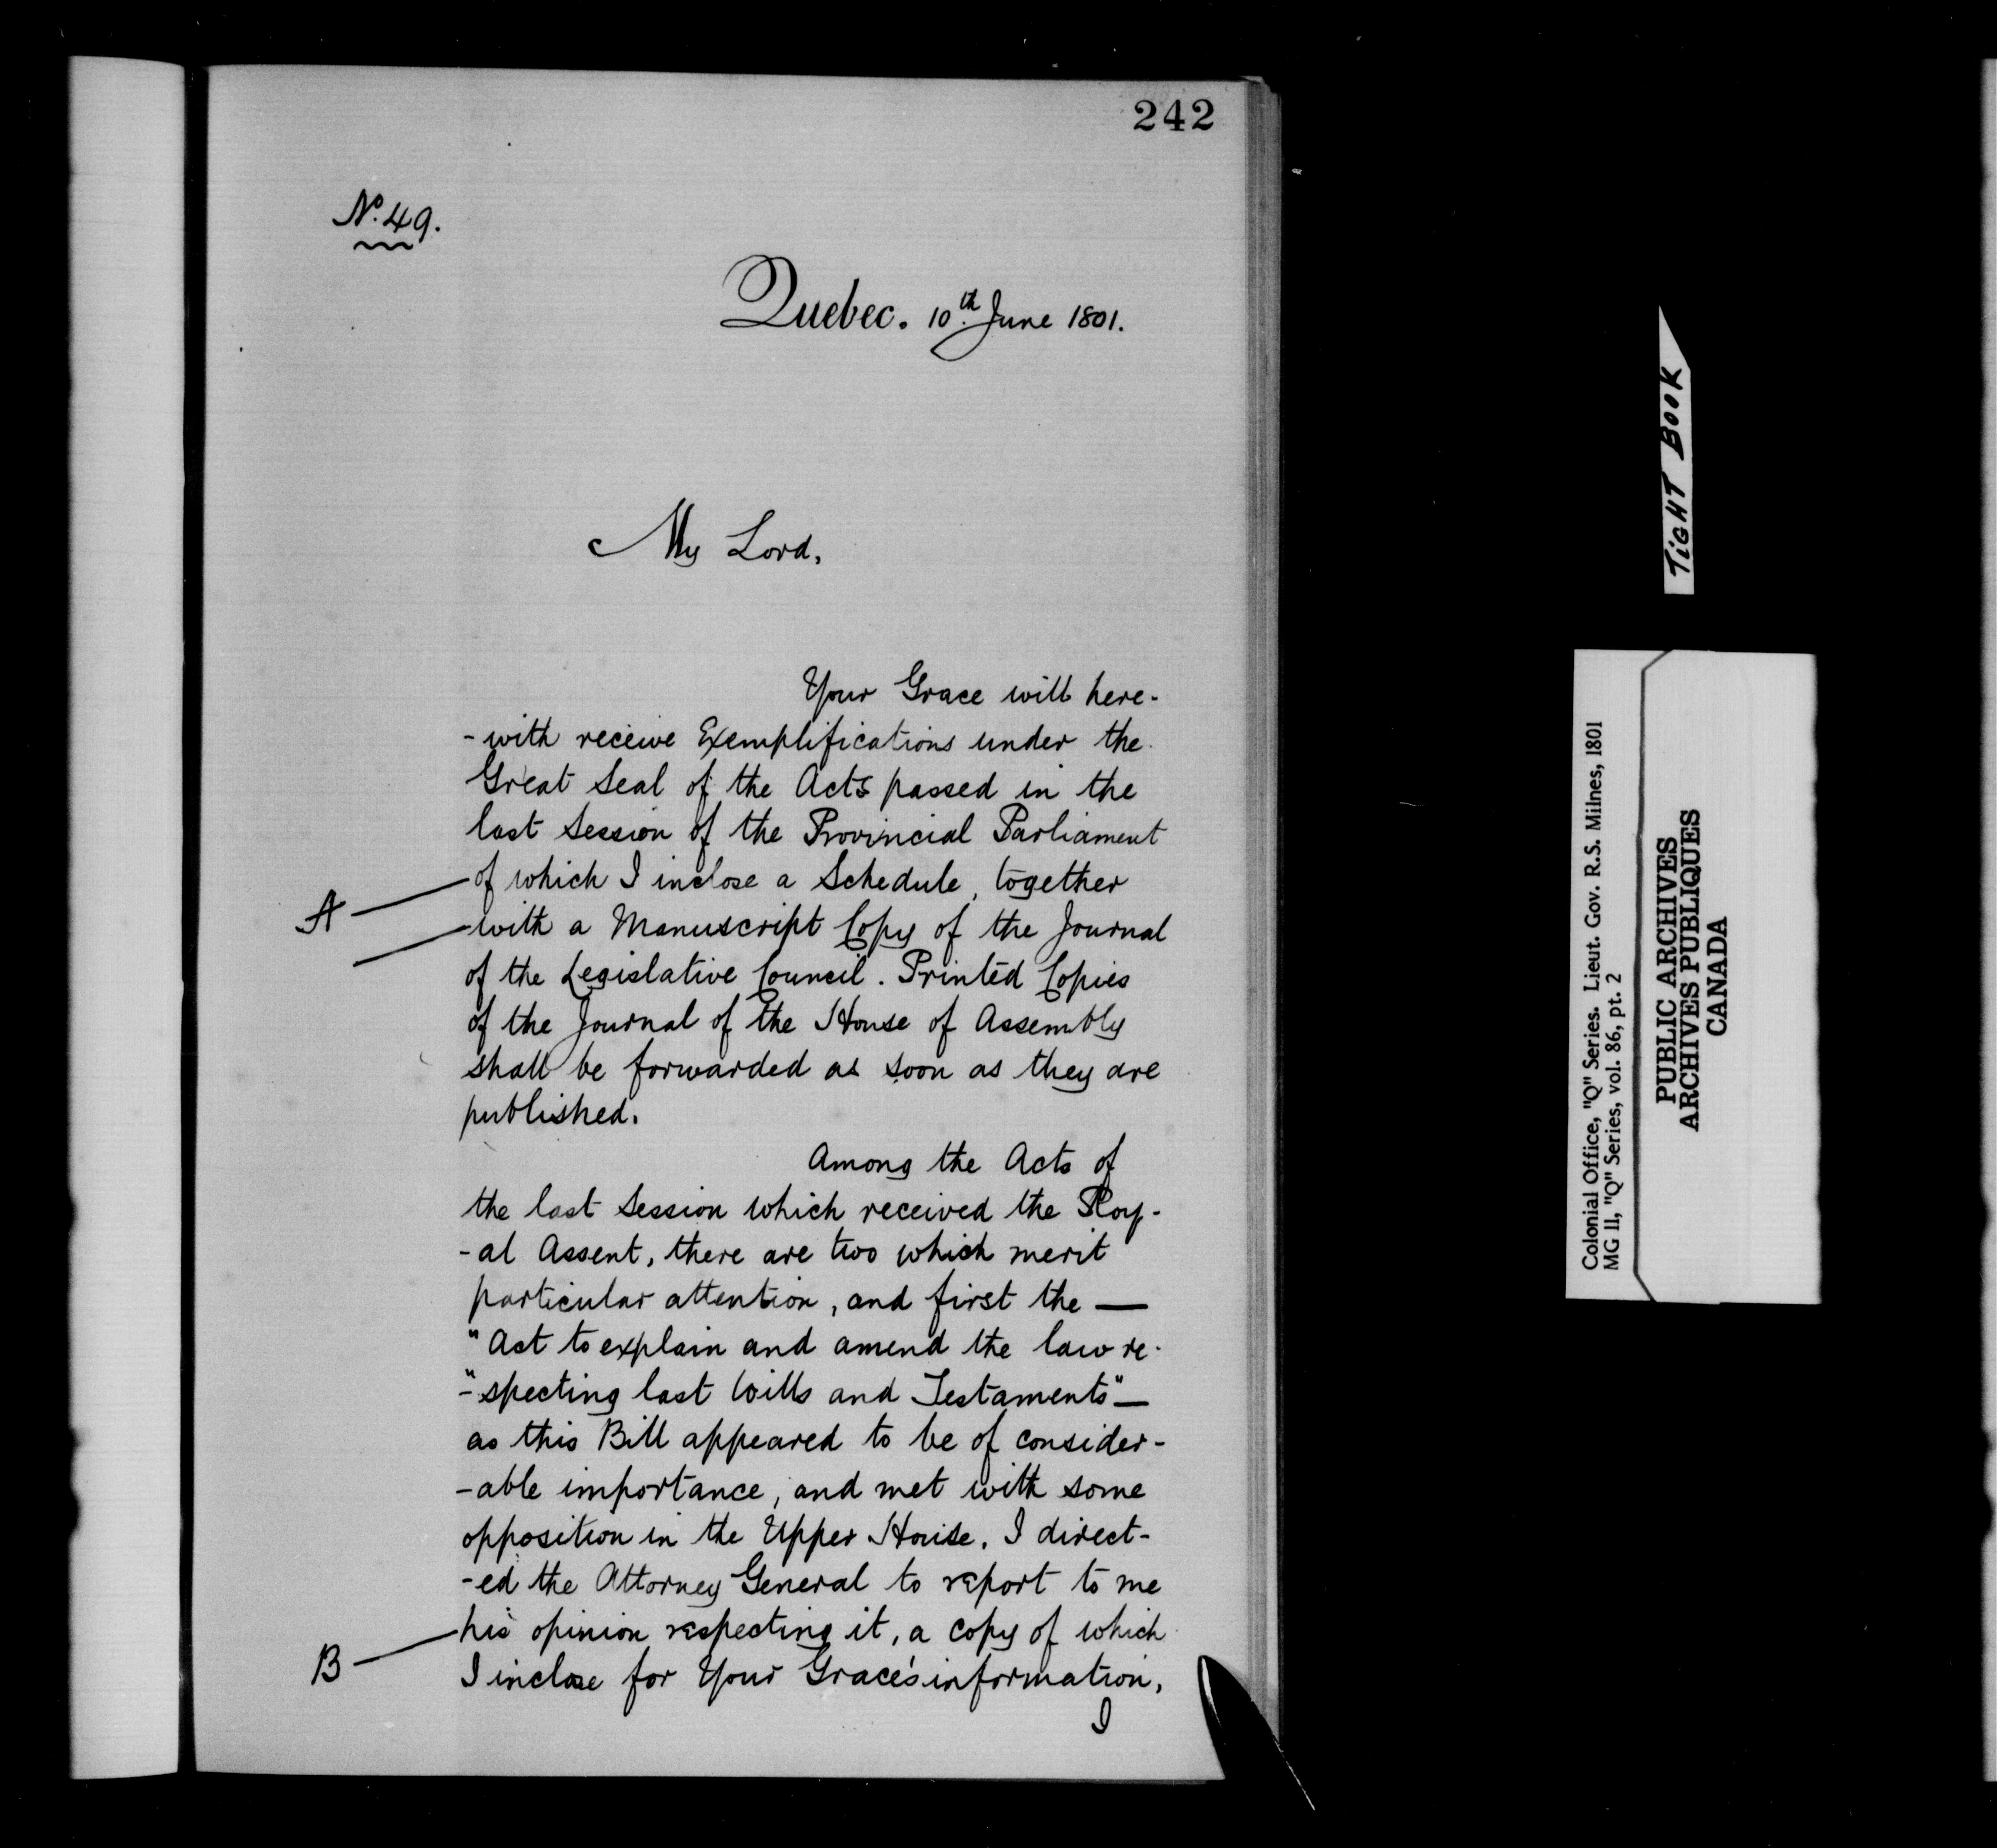 242
Nº. 49.
Quebec. 10th June 1801.
My Lord,
Your Grace will here-
-with receive Exemplifications under the
Great Seal of the Acts passed in the
last Session of the Provincial Parliament
of which I inclose a Schedule, together
A
with a Manuscript Copy of the Journal
of the Legislative Council. Printed Copies
of the Journal of the House of Assembly
shall be forwarded as soon as they are
published.
Among the Acts of
the last Session which received the Roy-
-al Assent, there are two which merit
particular attention, and first the —
"Act to explain and amend the law re-
"-specting last Wills and Testaments" —
as this Bill appeared to be of consider-
-able importance, and met with some
opposition in the Upper House. I direct-
-ed the Attorney General to report to me
his opinion respecting it, a copy of which
B
I inclose for Your Grace's information,
I
TIGHT BOOK
Colonial Office, "Q" Series. Lieut. Gov. R.S. Milnes, 1801
MG 11, "Q" Series, vol. 86, pt. 2
PUBLIC ARCHIVES
ARCHIVES PUBLIQUES
CANADA